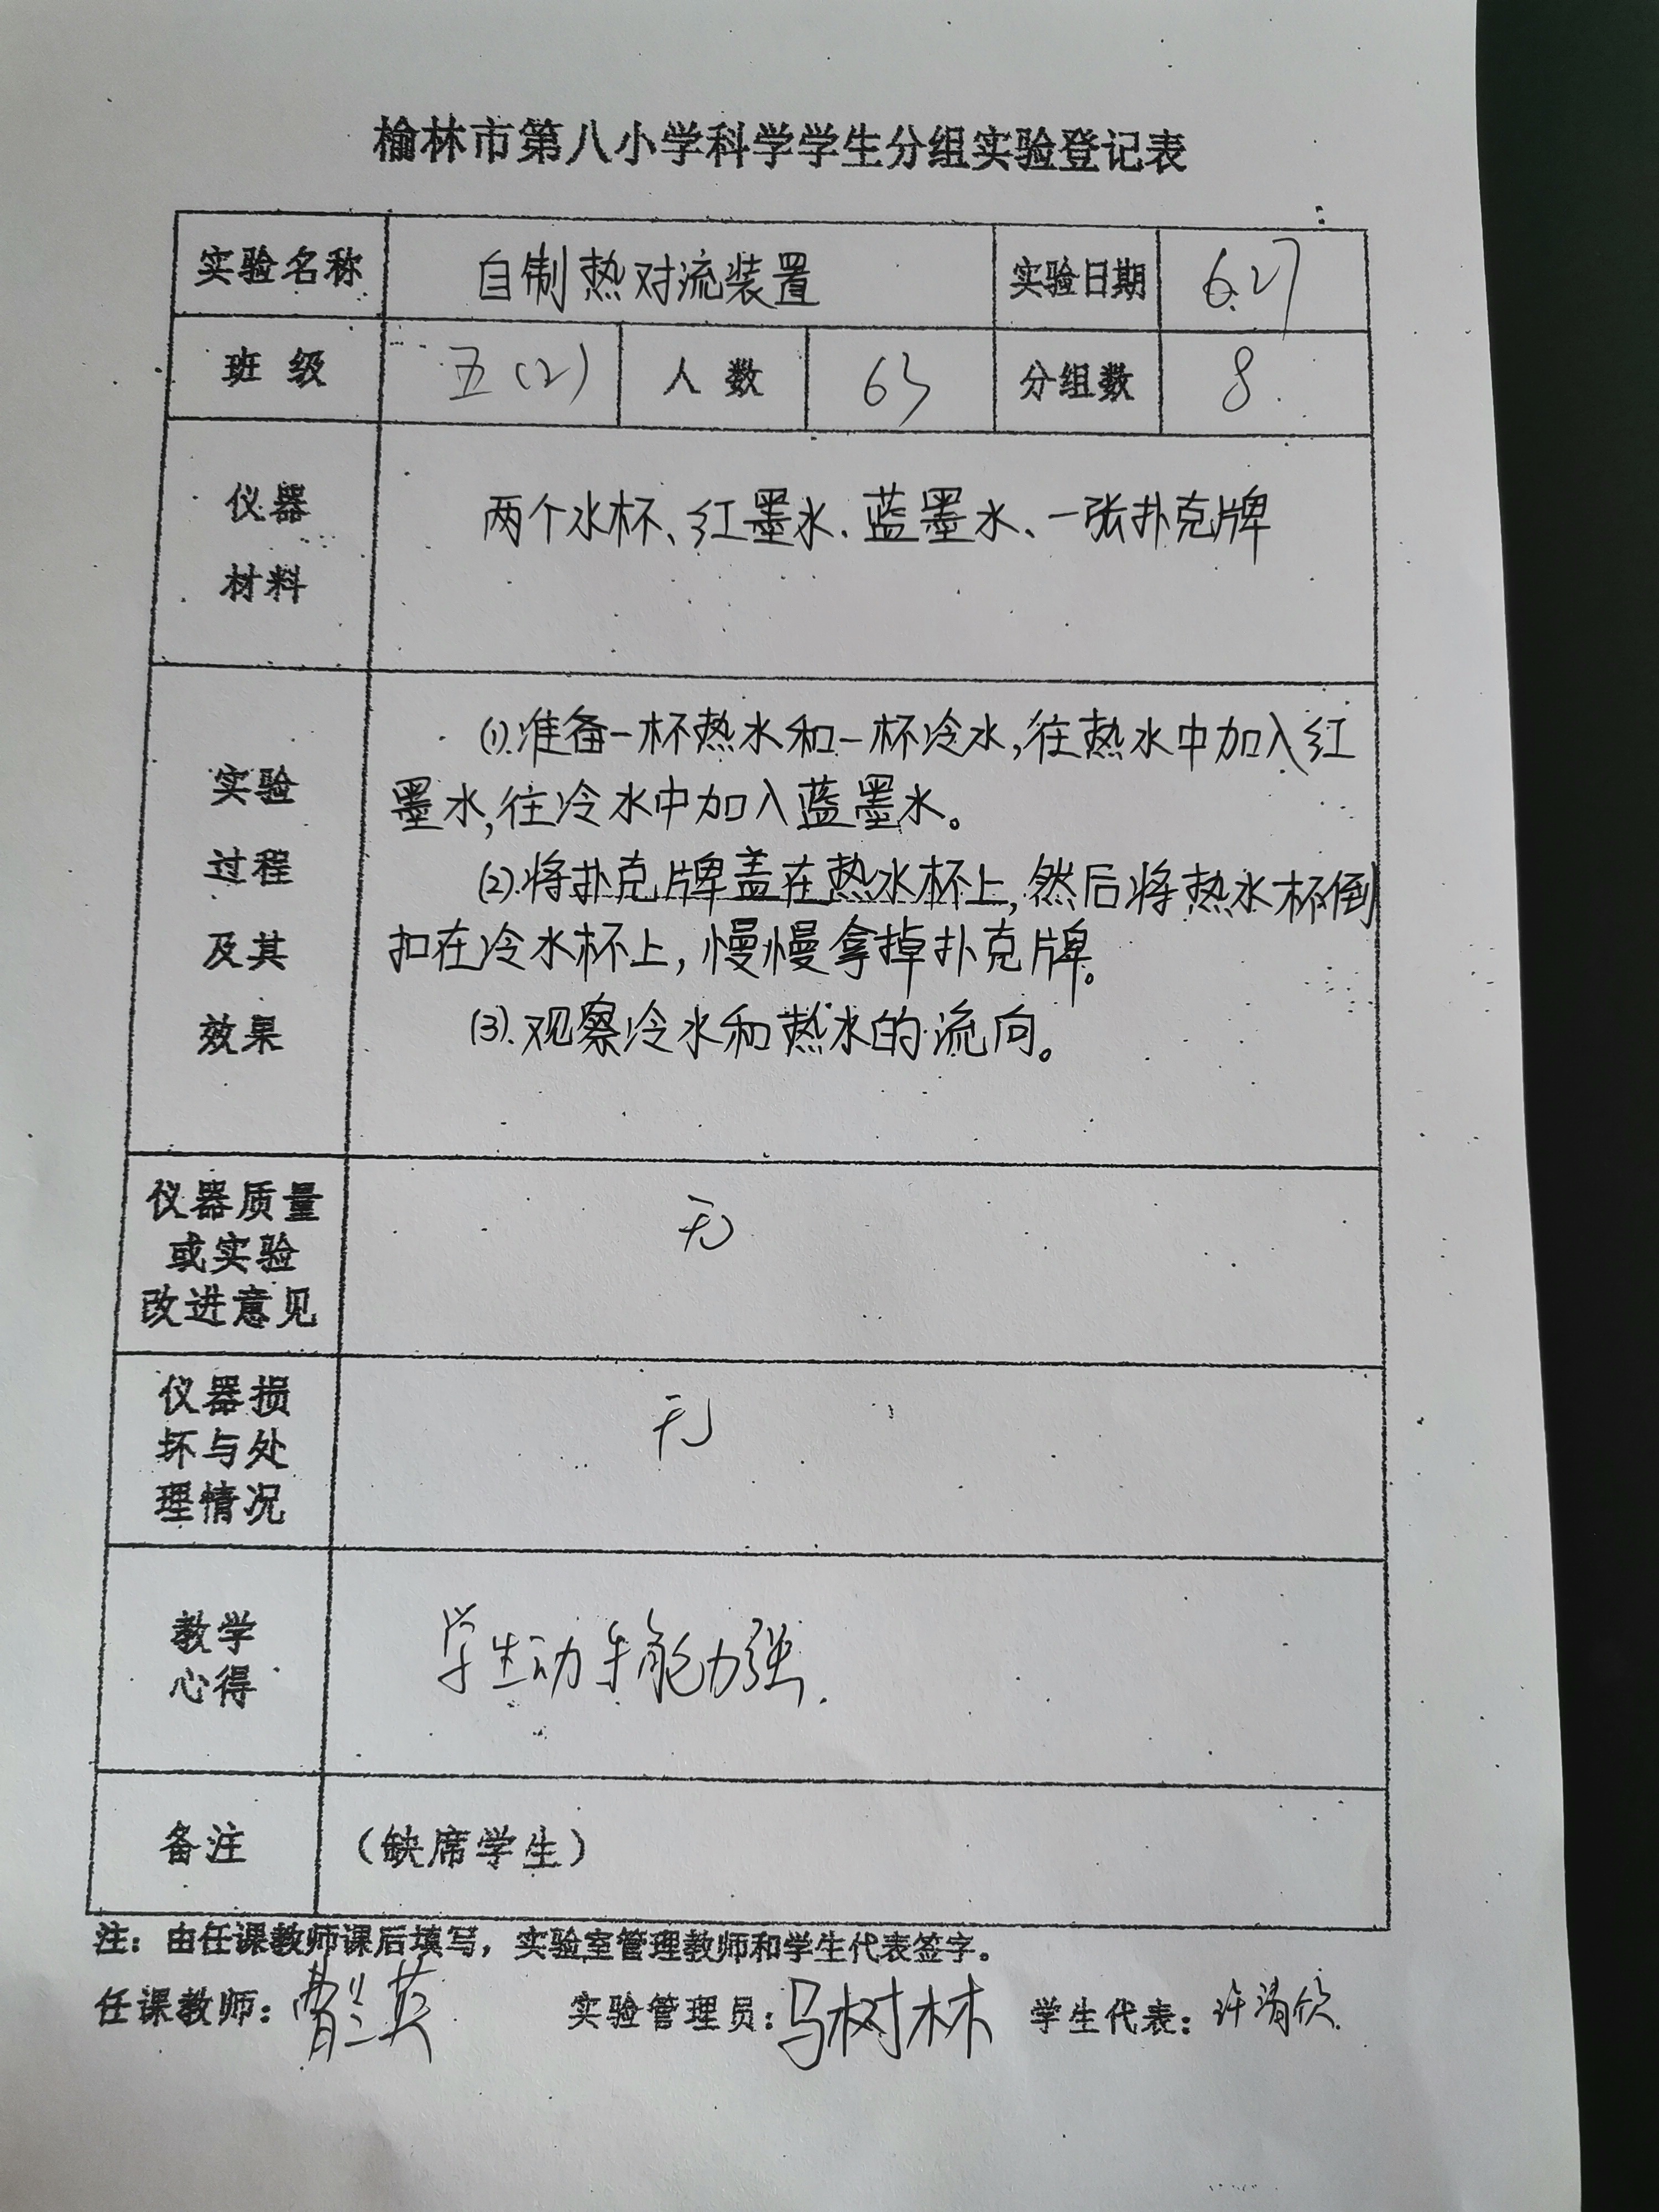 榆林市第八小学科学学生分组实验登记表
实验名称 自制热对流装置 实验日期 6.27
班 级 五(2) 人 数 63 分组数 8.
仪器
材料
两个水杯、红墨水.蓝墨水、一张扑克牌
实验
过程
及其
效果
(1).准备一杯热水和一杯冷水,往热水中加入红
墨水,往冷水中加入蓝墨水。
(2).将扑克牌盖在热水杯上,然后将热水杯倒
扣在冷水杯上,慢慢拿掉扑克牌。
(3).观察冷水和热水的流向。
仪器质量
或实验
改进意见
无
仪器损
坏与处
理情况
无
教学
心得
学生动手能力强.
备注 (缺席学生)
注: 由任课教师课后填写, 实验室管理教师和学生代表签字。
任课教师: 曹兰英 实验管理员: 马树林 学生代表: 许